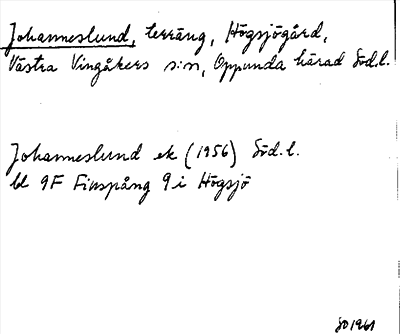 Johanneslund, terräng, Högsjögård,
Västra Vingåkers s:n, Oppunda härad Söd.l.
Johanneslund ek (1956) Söd.l.
bl 9F Finspång 9i Högsjö
SO 1961